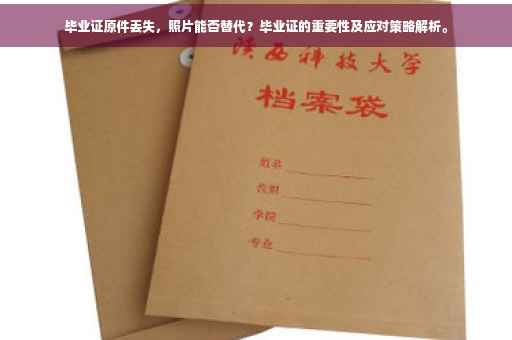 毕业证原件丢失，照片能否替代？毕业证的重要性及应对策略解析。
陕西科技大学
档案袋
姓名
学院
专业